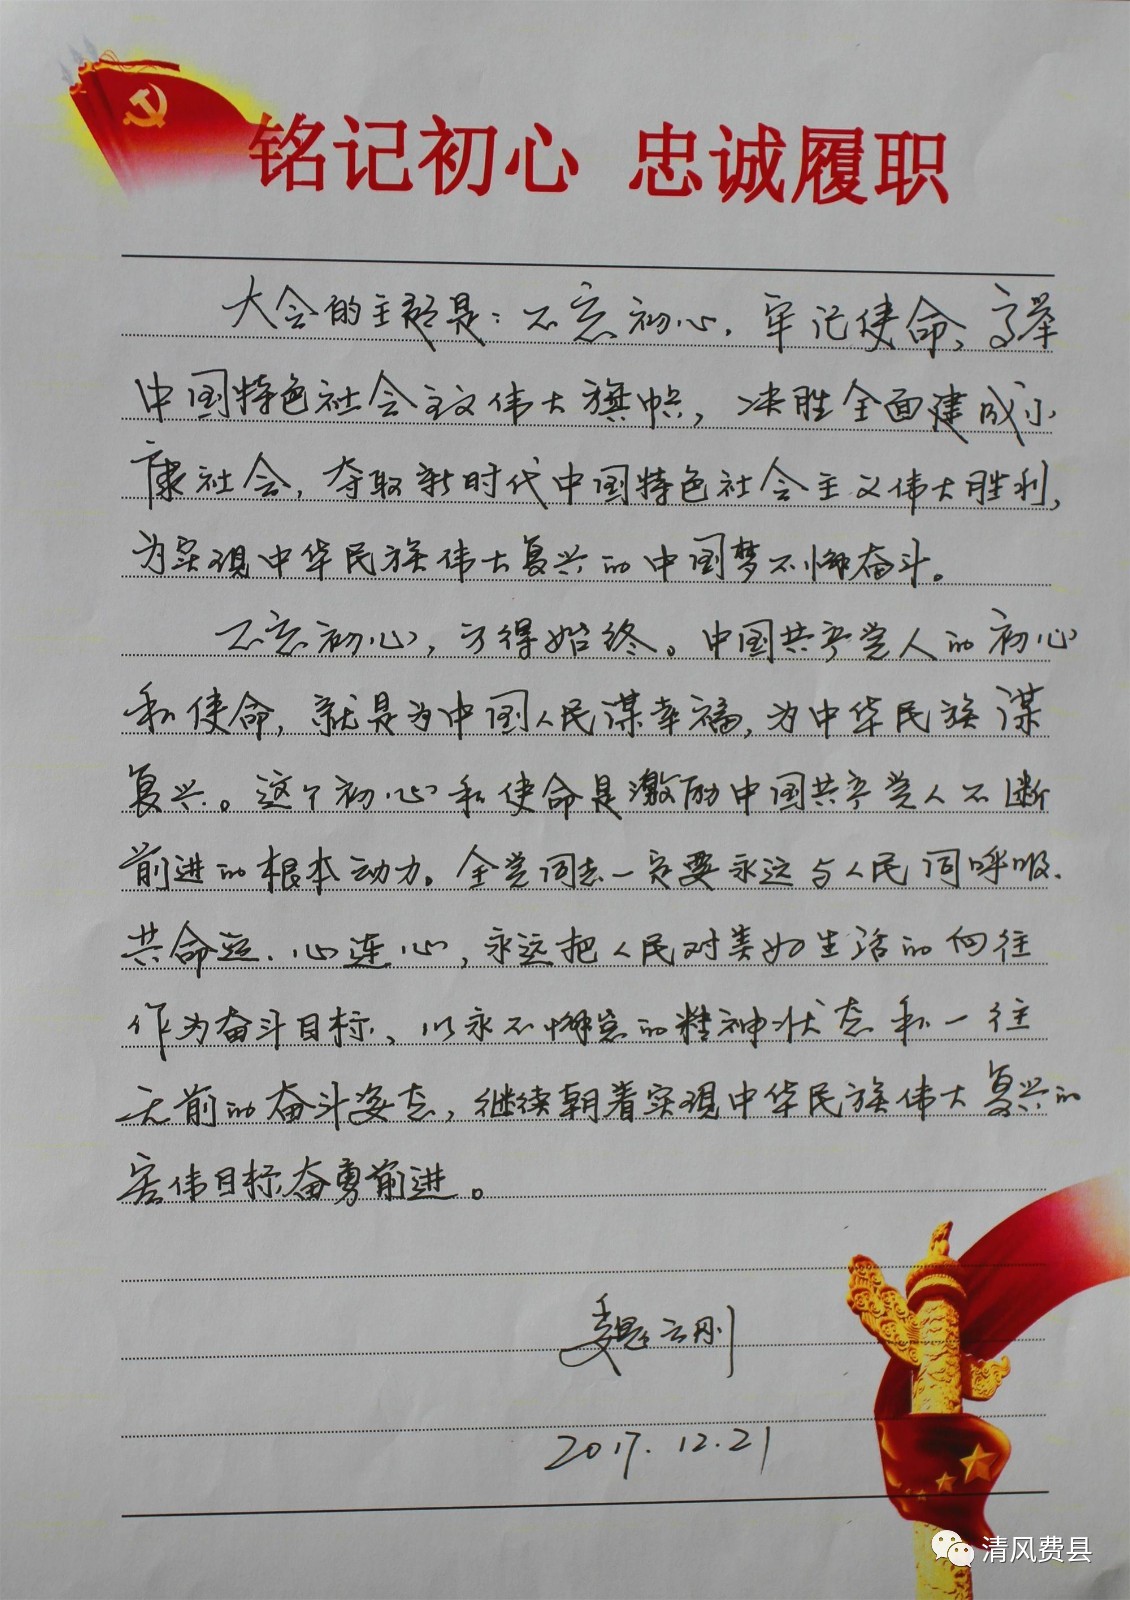 铭记初心 忠诚履职
大会的主题是：不忘初心，牢记使命，高举
中国特色社会主义伟大旗帜，决胜全面建成小
康社会，夺取新时代中国特色社会主义伟大胜利，
为实现中华民族伟大复兴的中国梦不懈奋斗。
不忘初心，方得始终。中国共产党人的初心
和使命，就是为中国人民谋幸福，为中华民族谋
复兴。这个初心和使命是激励中国共产党人不断
前进的根本动力。全党同志一定要永远与人民同呼吸、
共命运、心连心，永远把人民对美好生活的向往
作为奋斗目标，以永不懈怠的精神状态和一往
无前的奋斗姿态，继续朝着实现中华民族伟大复兴的
宏伟目标奋勇前进。
魏云刚
2017.12.21
清风费县